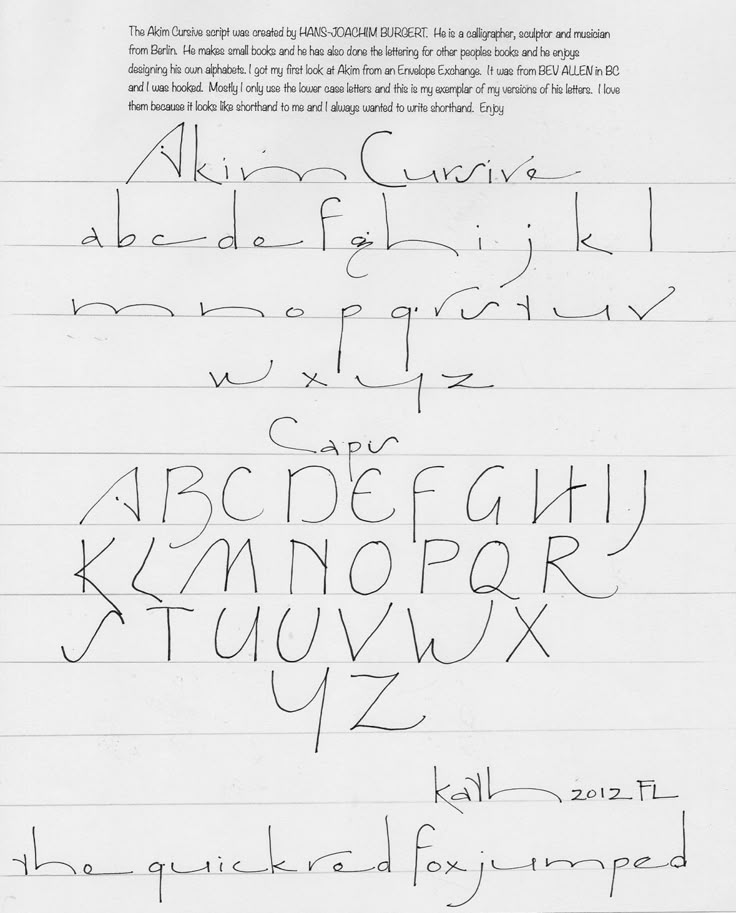 The Akim Cursive script was created by HANS-JOACHIM BURGERT. He is a calligrapher, sculptor and musician
from Berlin. He makes small books and he has also done the lettering for other peoples books and he enjoys
designing his own alphabets. I got my first look at Akim from an Envelope Exchange. It was from BEV ALLEN in BC
and I was hooked. Mostly I only use the lower case letters and this is my exemplar of my versions of his letters. I love
them because it looks like shorthand to me and I always wanted to write shorthand. Enjoy
Akim Cursive
a b c d e f g h i j k l
m n o p q r s t u v
w x y z
Caps
A B C D E F G H I J
K L M N O P Q R
S T U U V W X
Y Z
kath 2012 FL
the quick red fox jumped